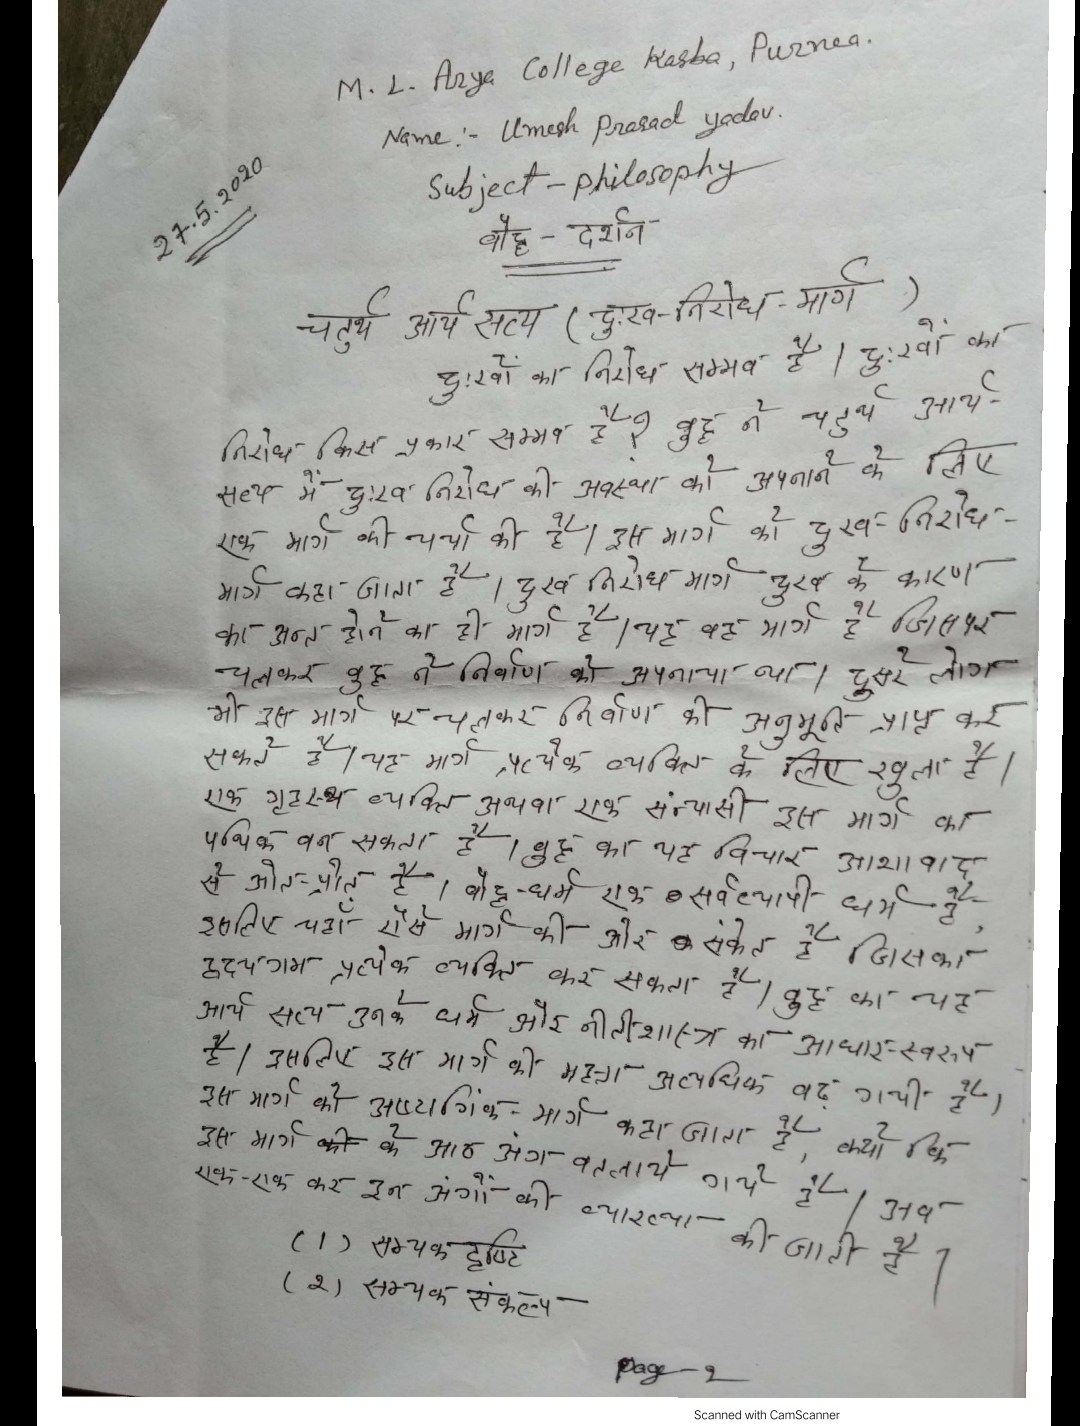 M. L. Arya College Kasba, Purnea.
Name :- Umesh Prasad yadav.
Subject - philosophy
27.5.2020
बौद्ध - दर्शन
चतुर्थ आर्य सत्य ( दुःख-निरोध-मार्ग )
दुःखों का निरोध सम्भव है । दुःखों का
निरोध किस प्रकार सम्भव है ? बुद्ध ने चतुर्थ आर्य-
सत्य में दुःख निरोध की अवस्था को अपनाने के लिए
एक मार्ग की चर्चा की है । इस मार्ग को दुख-निरोध-
मार्ग कहा जाता है । दुख निरोध मार्ग दुख के कारण
का अन्त होने का ही मार्ग है । यह वह मार्ग है जिसपर
चलकर बुद्ध ने निर्वाण को अपनाया था । दुसरे लोग
भी इस मार्ग पर चलकर निर्वाण की अनुभूति प्राप्त कर
सकते हैं । यह मार्ग प्रत्येक व्यक्ति के लिए खुला है ।
एक गृहस्थ व्यक्ति अथवा एक संन्यासी इस मार्ग का
पथिक बन सकता है । बुद्ध का यह विचार आशावाद
से ओत-प्रोत है । बौद्ध-धर्म एक सर्वव्यापी धर्म है,
इसलिए यहाँ ऐसे मार्ग की ओर संकेत है जिसका
हृदयंगम प्रत्येक व्यक्ति कर सकता है । बुद्ध का यह
आर्य सत्य उनके धर्म और नीतीशास्त्र का आधार-स्वरूप
है । इसलिए इस मार्ग की महत्ता अत्यधिक बढ़ गयी है ।
इस मार्ग को अष्टांगिक-मार्ग कहा जाता है, क्यों कि
इस मार्ग के आठ अंग बतलाये गये हैं । अब
एक-एक कर इन अंगों की व्याख्या की जाती है ।
(1) सम्यक दृष्टि
(2) सम्यक संकल्प
Page - 2
Scanned with CamScanner